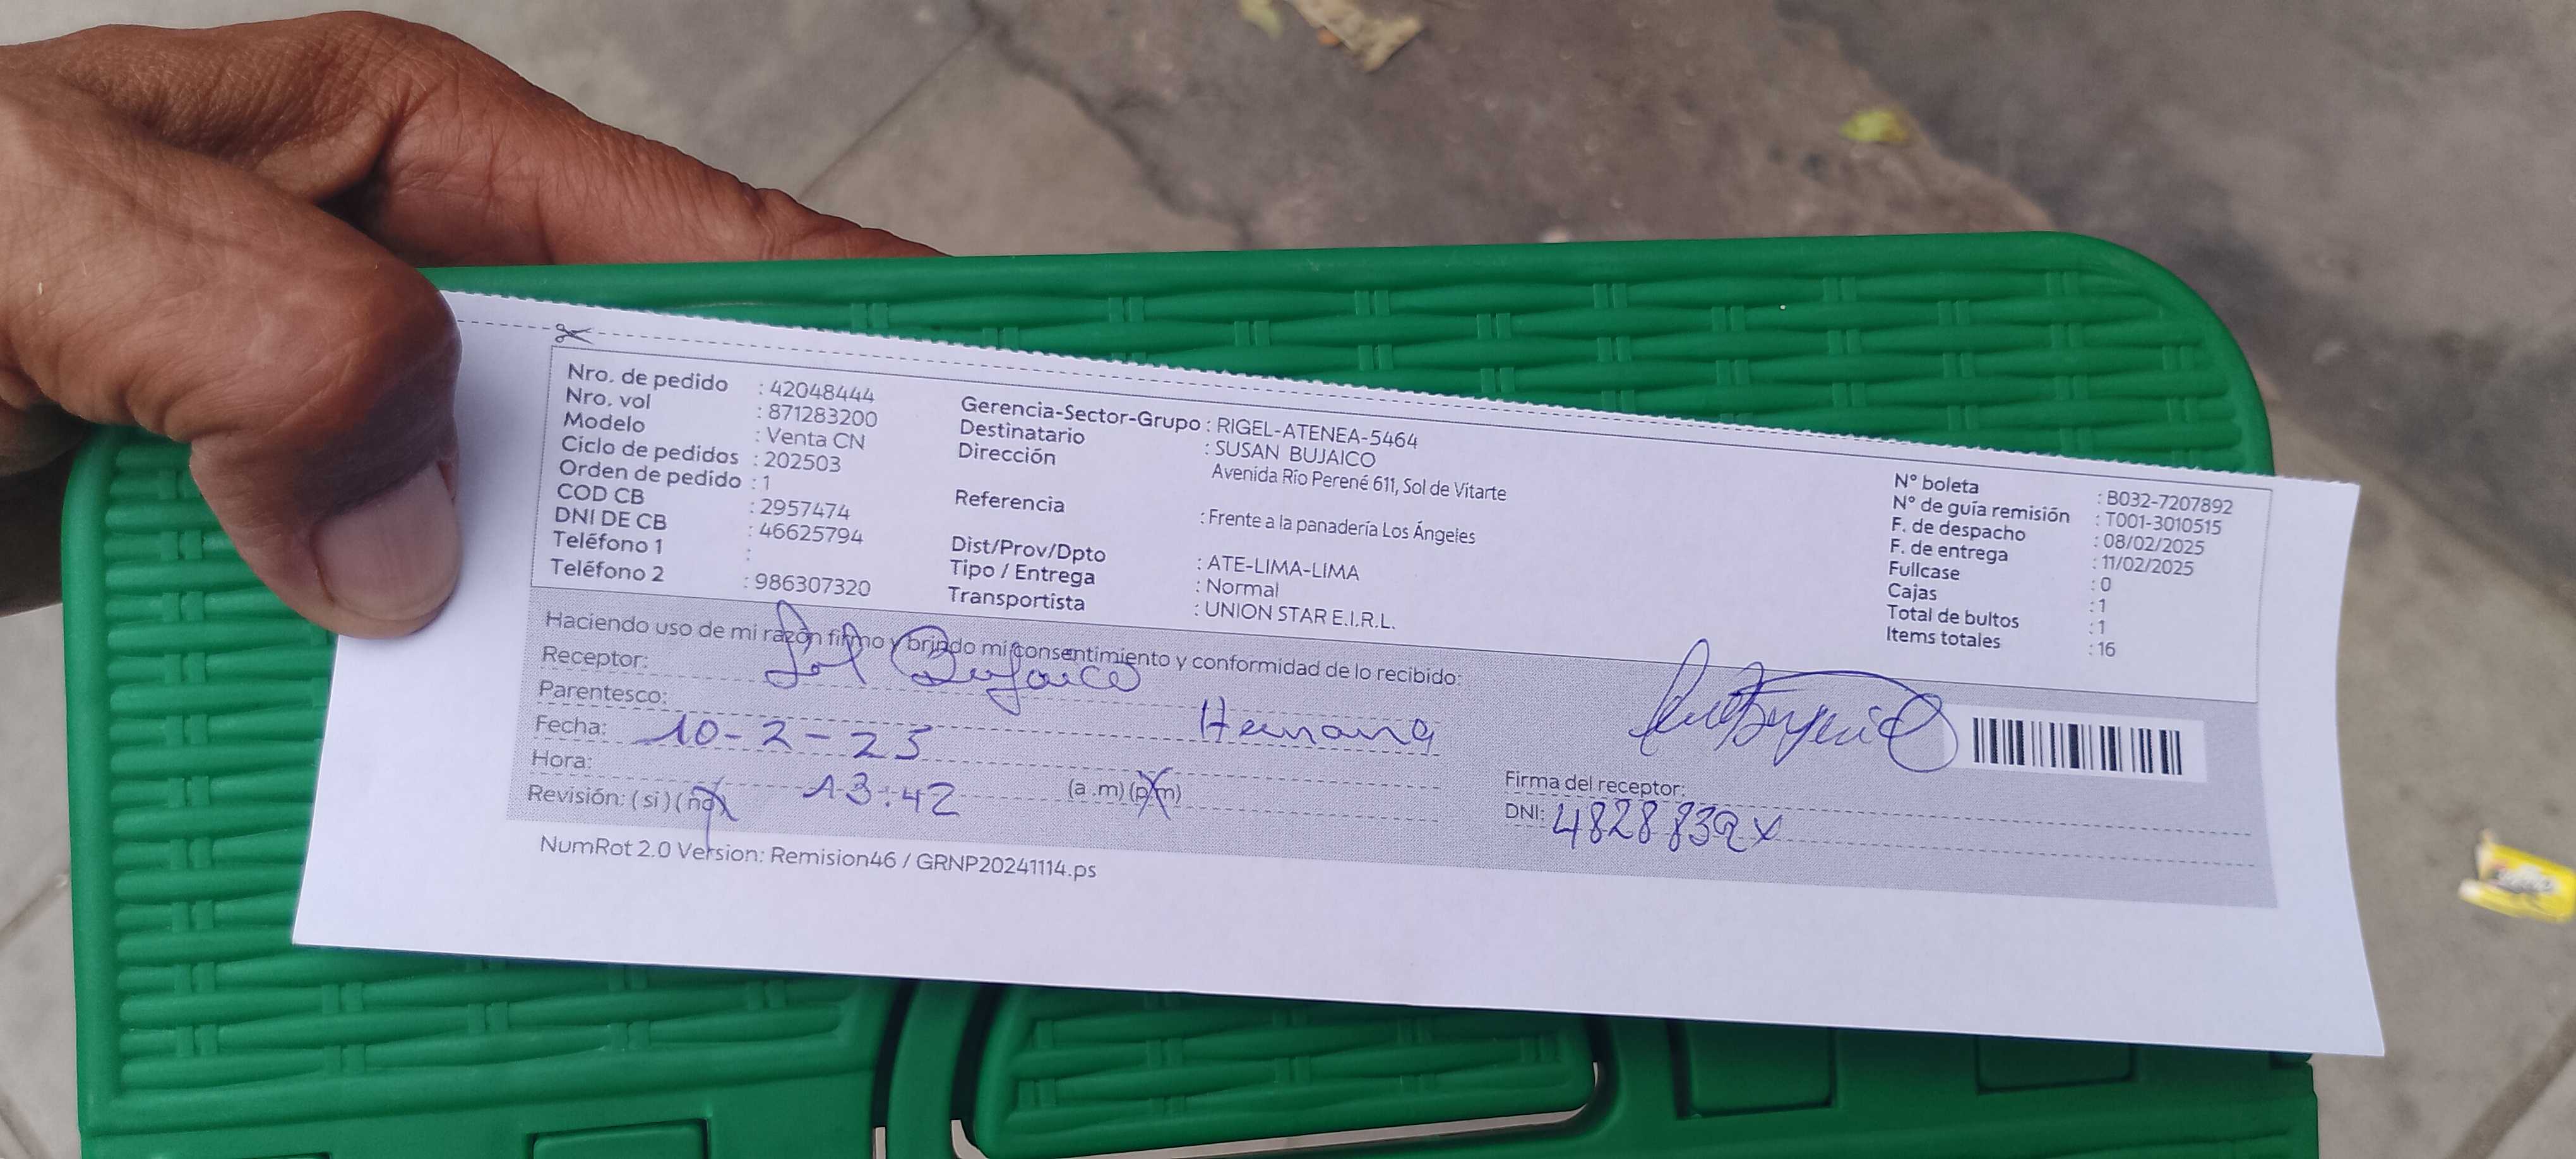 Nro. de pedido : 42048444
Nro. vol : 871283200
Modelo : Venta CN
Ciclo de pedidos : 202503
Orden de pedido : 1
COD CB : 2957474
DNI DE CB : 46625794
Teléfono 1 :
Teléfono 2 : 986307320
Gerencia-Sector-Grupo : RIGEL-ATENEA-5464
Destinatario : SUSAN BUJAICO
Dirección Avenida Río Perené 611, Sol de Vitarte
Referencia : Frente a la panadería Los Ángeles
Dist/Prov/Dpto : ATE-LIMA-LIMA
Tipo / Entrega : Normal
Transportista : UNION STAR E.I.R.L.
N° boleta : B032-7207892
N° de guía remisión : T001-3010515
F. de despacho : 08/02/2025
F. de entrega : 11/02/2025
Fullcase : 0
Cajas : 1
Total de bultos : 1
Items totales : 16
Haciendo uso de mi razón firmo y brindo mi consentimiento y conformidad de lo recibido:
Receptor: Sol Bujaico
Parentesco: Hermana
Fecha: 10-2-25
Hora: 13:42 (a.m) (p.m)
Revisión: (si) (no)
Firma del receptor:
DNI: 4828839
NumRot 2.0 Version: Remision46 / GRNP20241114.ps